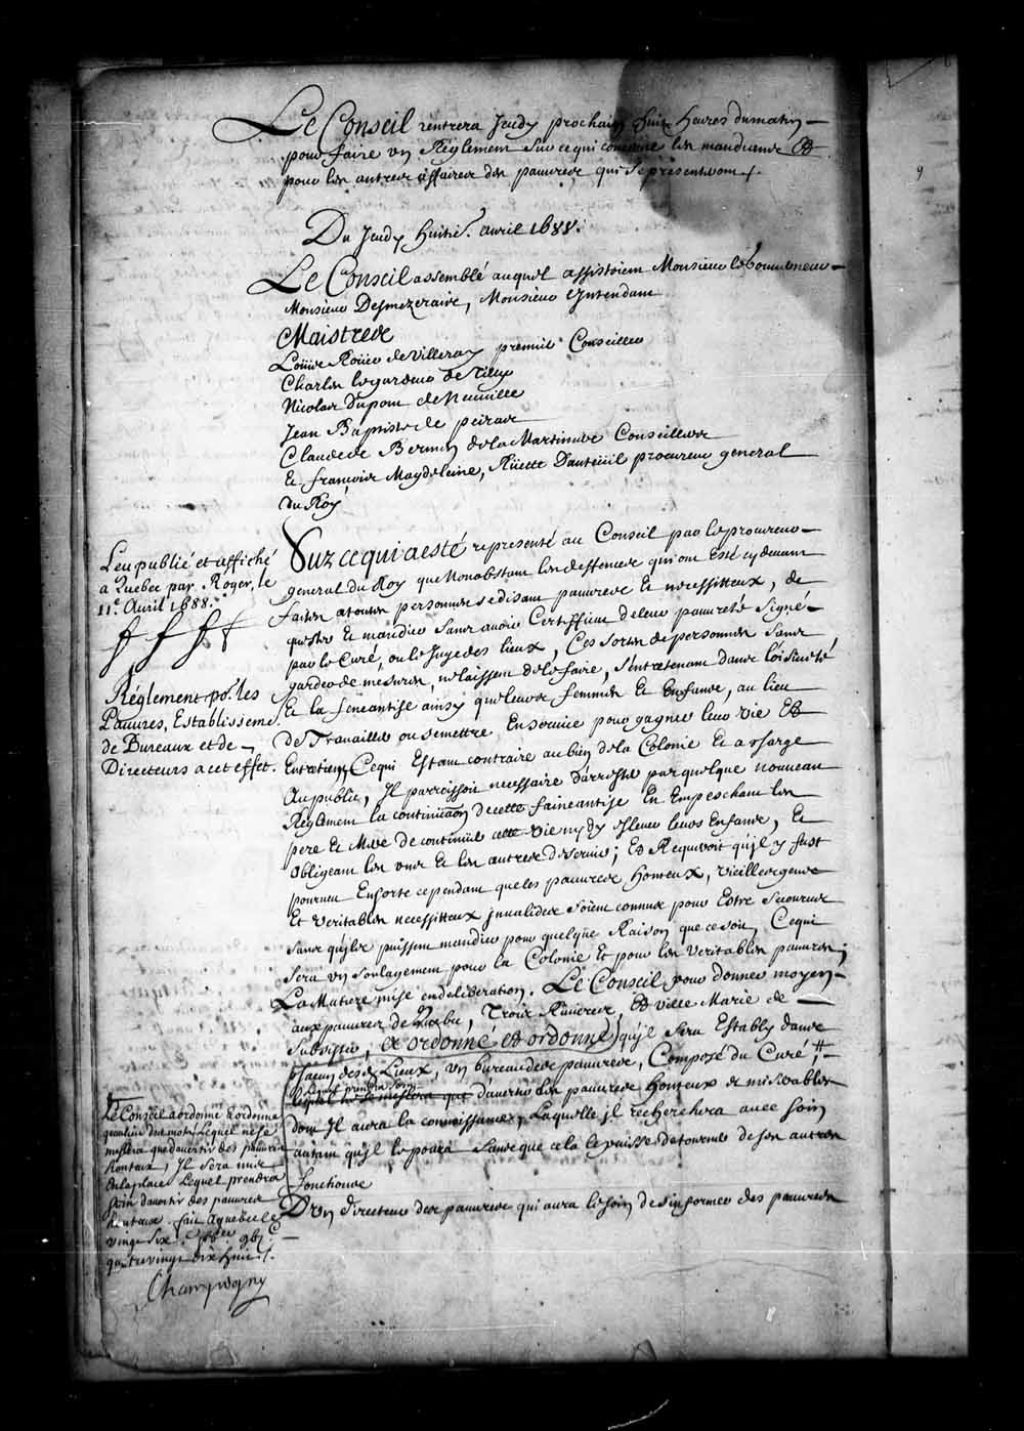 Le Conseil rentrera Jeudy prochain huit heures du matin
pour faire un Reglement sur ce qui concerne les mandians Et
pour les autres affaires des pauvres qui se presenteront ./.
Du Jeudy huitie. avril 1688.
Le Conseil assemblé auquel assistoient Monsieur le Gouverneur
Monsieur Desmezeraits, Monsieur Yntendant
Maistres
Loüis Roüer de Villeray premier Conseiller
Charles legardeur de Tilly
Nicolas dupont de Neuville
Jean Baptiste de peiras
Claude de Bermen de la Martiniere Conseillers
Et françois Magdeleine, Rüette Dauteüil procureur general
du Roy
Sur ce qui a esté representé au Conseil par le procureur
general du Roy que Nonobstant les deffences qui ont Esté cy devant
faites a toutes personnes se disant pauvres Et necessiteux, de
quester Et mandier sans avoir Certifficat de leur pauvreté Signé
par le Curé, ou le Juge des lieux, Ces sortes de personnes sans
garder de mesures, ne laissent de le faire, s'entretenant dans l'oisiveté
Et la feneantise ainsy que leurs femmes Et Enfans, au lieu
de Travailler ou se mettre En service pour gagner leur vie Et
Entretien, Ce qui Estant contraire au bien de la Colonie Et a charge
Au public, Il parroissoit necessaire d'arrester par quelque nouveau
Reglement la continuaon de cette faineantise En Empeschant les
pere Et Mere de continüer cette vie ny dy Eslever leurs Enfans, Et
obligeant les uns Et les autres de servir; Et Requeroit qu'il y fust
pourveu Ensorte cependant que les pauvres honteux, vieilles gens
Et veritables necessitteux jnvalides soient connus pour Estre Secourus
sans qu'ils puissent mandier pour quelque Raison que ce soit, Ce qui
Sera un soulagement pour la Colonie Et pour les veritables pauvres;
La Matiere mise en deliberation. Le Conseil pour donner moyen
aux pauvres de Quebec, Trois Rivieres, Et ville Marie de
Subsister, a ordonné et ordonne, qu'il sera Estably dans
chacun desdits Lieux, un bureau des pauvres, Composé du Curé, #
Lequel prendra soin
lequel ne se meslera que d'avertir les pauvres honteux et miserables
dont Il aura la connoissance, Laquelle jl recherchera avec soin
autant qu'jl le poura sans que cela le puisse detourner de ses autres
fonctions
D'un directeur des pauvres qui aura le soin de s'informer des pauvres
Leu publié et affiché
a Quebec par Roger, le
11e. Avril 1688.
Réglement po.r les
Pauvres, Establisseme.
de Bureaux et de
Directeurs a cet effet.
Le Conseil a ordonné Et ordonne
qu'au lieu des mots Lequel ne se
meslera que d'avertir des pauvres
honteux, Il sera mis
En la place Lequel prendra
soin d'avertir des pauvres
honteux. fait a quebec le
vingt six
quatrevingt dix huit ./.
Champigny
9
8